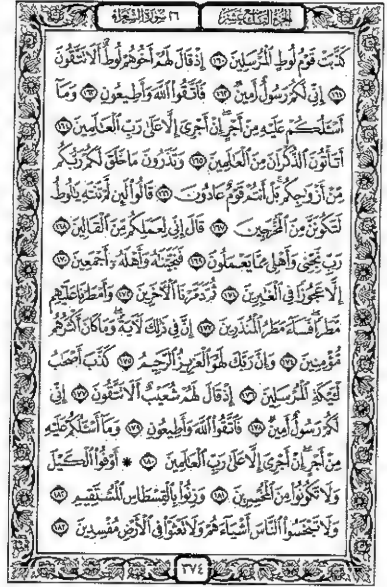 الجزء التاسع عشر ٢٦ سورة الشعراء
كَذَّبَتْ قَوْمُ لُوطٍ ٱلْمُرْسَلِينَ ١٦٠ إِذْ قَالَ لَهُمْ أَخُوهُمْ لُوطٌ أَلَا تَتَّقُونَ
١٦١ إِنِّي لَكُمْ رَسُولٌ أَمِينٌ ١٦٢ فَٱتَّقُوا۟ ٱللَّهَ وَأَطِيعُونِ ١٦٣ وَمَآ
أَسْـَٔلُكُمْ عَلَيْهِ مِنْ أَجْرٍ إِنْ أَجْرِىَ إِلَّا عَلَىٰ رَبِّ ٱلْعَـٰلَمِينَ ١٦٤
أَتَأْتُونَ ٱلذُّكْرَانَ مِنَ ٱلْعَـٰلَمِينَ ١٦٥ وَتَذَرُونَ مَا خَلَقَ لَكُمْ رَبُّكُم
مِّنْ أَزْوَٰجِكُم بَلْ أَنتُمْ قَوْمٌ عَادُونَ ١٦٦ قَالُوا۟ لَئِن لَّمْ تَنتَهِ يَـٰلُوطُ
لَتَكُونَنَّ مِنَ ٱلْمُخْرَجِينَ ١٦٧ قَالَ إِنِّى لِعَمَلِكُم مِّنَ ٱلْقَالِينَ ١٦٨
رَبِّ نَجِّنِى وَأَهْلِى مِمَّا يَعْمَلُونَ ١٦٩ فَنَجَّيْنَـٰهُ وَأَهْلَهُۥٓ أَجْمَعِينَ ١٧٠
إِلَّا عَجُوزًا فِى ٱلْغَـٰبِرِينَ ١٧١ ثُمَّ دَمَّرْنَا ٱلْـَٔاخَرِينَ ١٧٢ وَأَمْطَرْنَا عَلَيْهِم
مَّطَرًا فَسَآءَ مَطَرُ ٱلْمُنذَرِينَ ١٧٣ إِنَّ فِى ذَٰلِكَ لَـَٔايَةً وَمَا كَانَ أَكْثَرُهُم
مُّؤْمِنِينَ ١٧٤ وَإِنَّ رَبَّكَ لَهُوَ ٱلْعَزِيزُ ٱلرَّحِيمُ ١٧٥ كَذَّبَ أَصْحَـٰبُ
لْـَٔيْكَةِ ٱلْمُرْسَلِينَ ١٧٦ إِذْ قَالَ لَهُمْ شُعَيْبٌ أَلَا تَتَّقُونَ ١٧٧ إِنِّى
لَكُمْ رَسُولٌ أَمِينٌ ١٧٨ فَٱتَّقُوا۟ ٱللَّهَ وَأَطِيعُونِ ١٧٩ وَمَآ أَسْـَٔلُكُمْ عَلَيْهِ
مِنْ أَجْرٍ إِنْ أَجْرِىَ إِلَّا عَلَىٰ رَبِّ ٱلْعَـٰلَمِينَ ١٨٠ * أَوْفُوا۟ ٱلْكَيْلَ
وَلَا تَكُونُوا۟ مِنَ ٱلْمُخْسِرِينَ ١٨١ وَزِنُوا۟ بِٱلْقِسْطَاسِ ٱلْمُسْتَقِيمِ ١٨٢
وَلَا تَبْخَسُوا۟ ٱلنَّاسَ أَشْيَآءَهُمْ وَلَا تَعْثَوْا۟ فِى ٱلْأَرْضِ مُفْسِدِينَ ١٨٣
٣٧٤